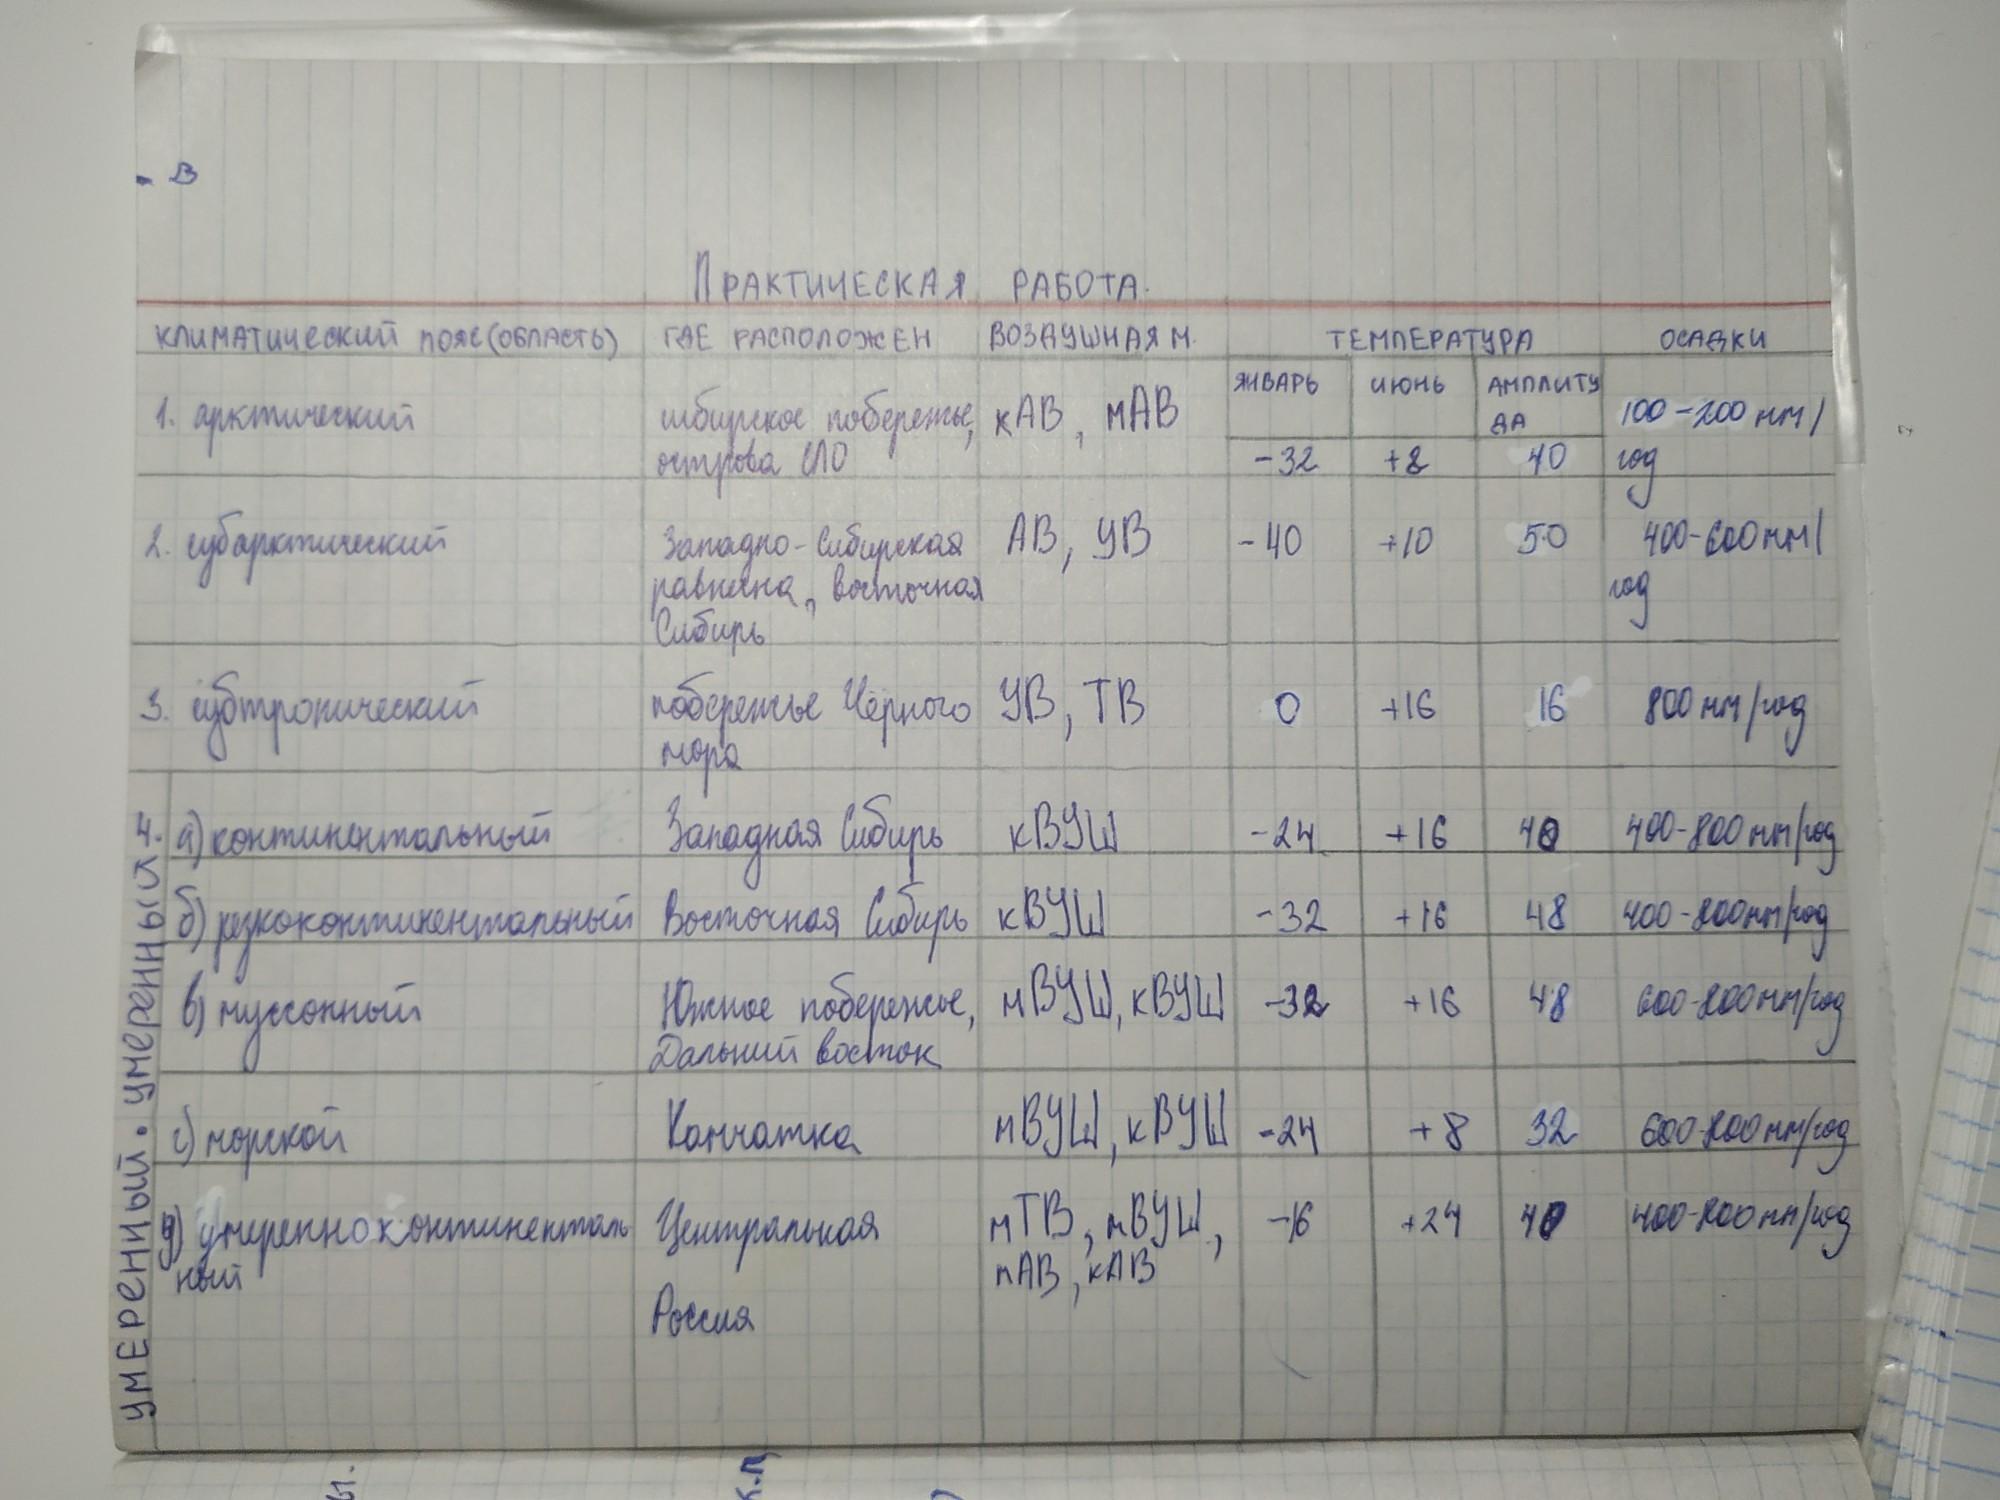 - В
ПРАКТИЧЕСКАЯ РАБОТА.
КЛИМАТИЧЕСКИЙ ПОЯС (ОБЛАСТЬ) ГДЕ РАСПОЛОЖЕН ВОЗДУШНАЯ М. ТЕМПЕРАТУРА ОСАДКИ
ЯНВАРЬ ИЮНЬ АМПЛИТУ
ДА
1. арктический сибирское побережье, кАВ, мАВ 100-200 мм/
острова СЛО -32 +8 40 год
2. субарктический Западно-Сибирская АВ, УВ -40 +10 50 400-600 мм/
равнина, восточная год
Сибирь
3. субтропический побережье Чёрного УВ, ТВ 0 +16 16 800 мм/год
моря
УМЕРЕННЫЙ. УМЕРЕННЫЙ 4.
а) континентальный Западная Сибирь кВУШ -24 +16 40 400-800 мм/год
б) резкоконтинентальный Восточная Сибирь кВУШ -32 +16 48 400-800 мм/год
в) муссонный Южное побережье, мВУШ, кВУШ -32 +16 48 600-800 мм/год
Дальний восток
г) морской Камчатка мВУШ, кВУШ -24 +8 32 600-800 мм/год
д) умеренно континенталь Центральная мТВ, мВУШ, -16 +24 40 400-800 мм/год
ный мАВ, кАВ
Россия
ы.
к.п